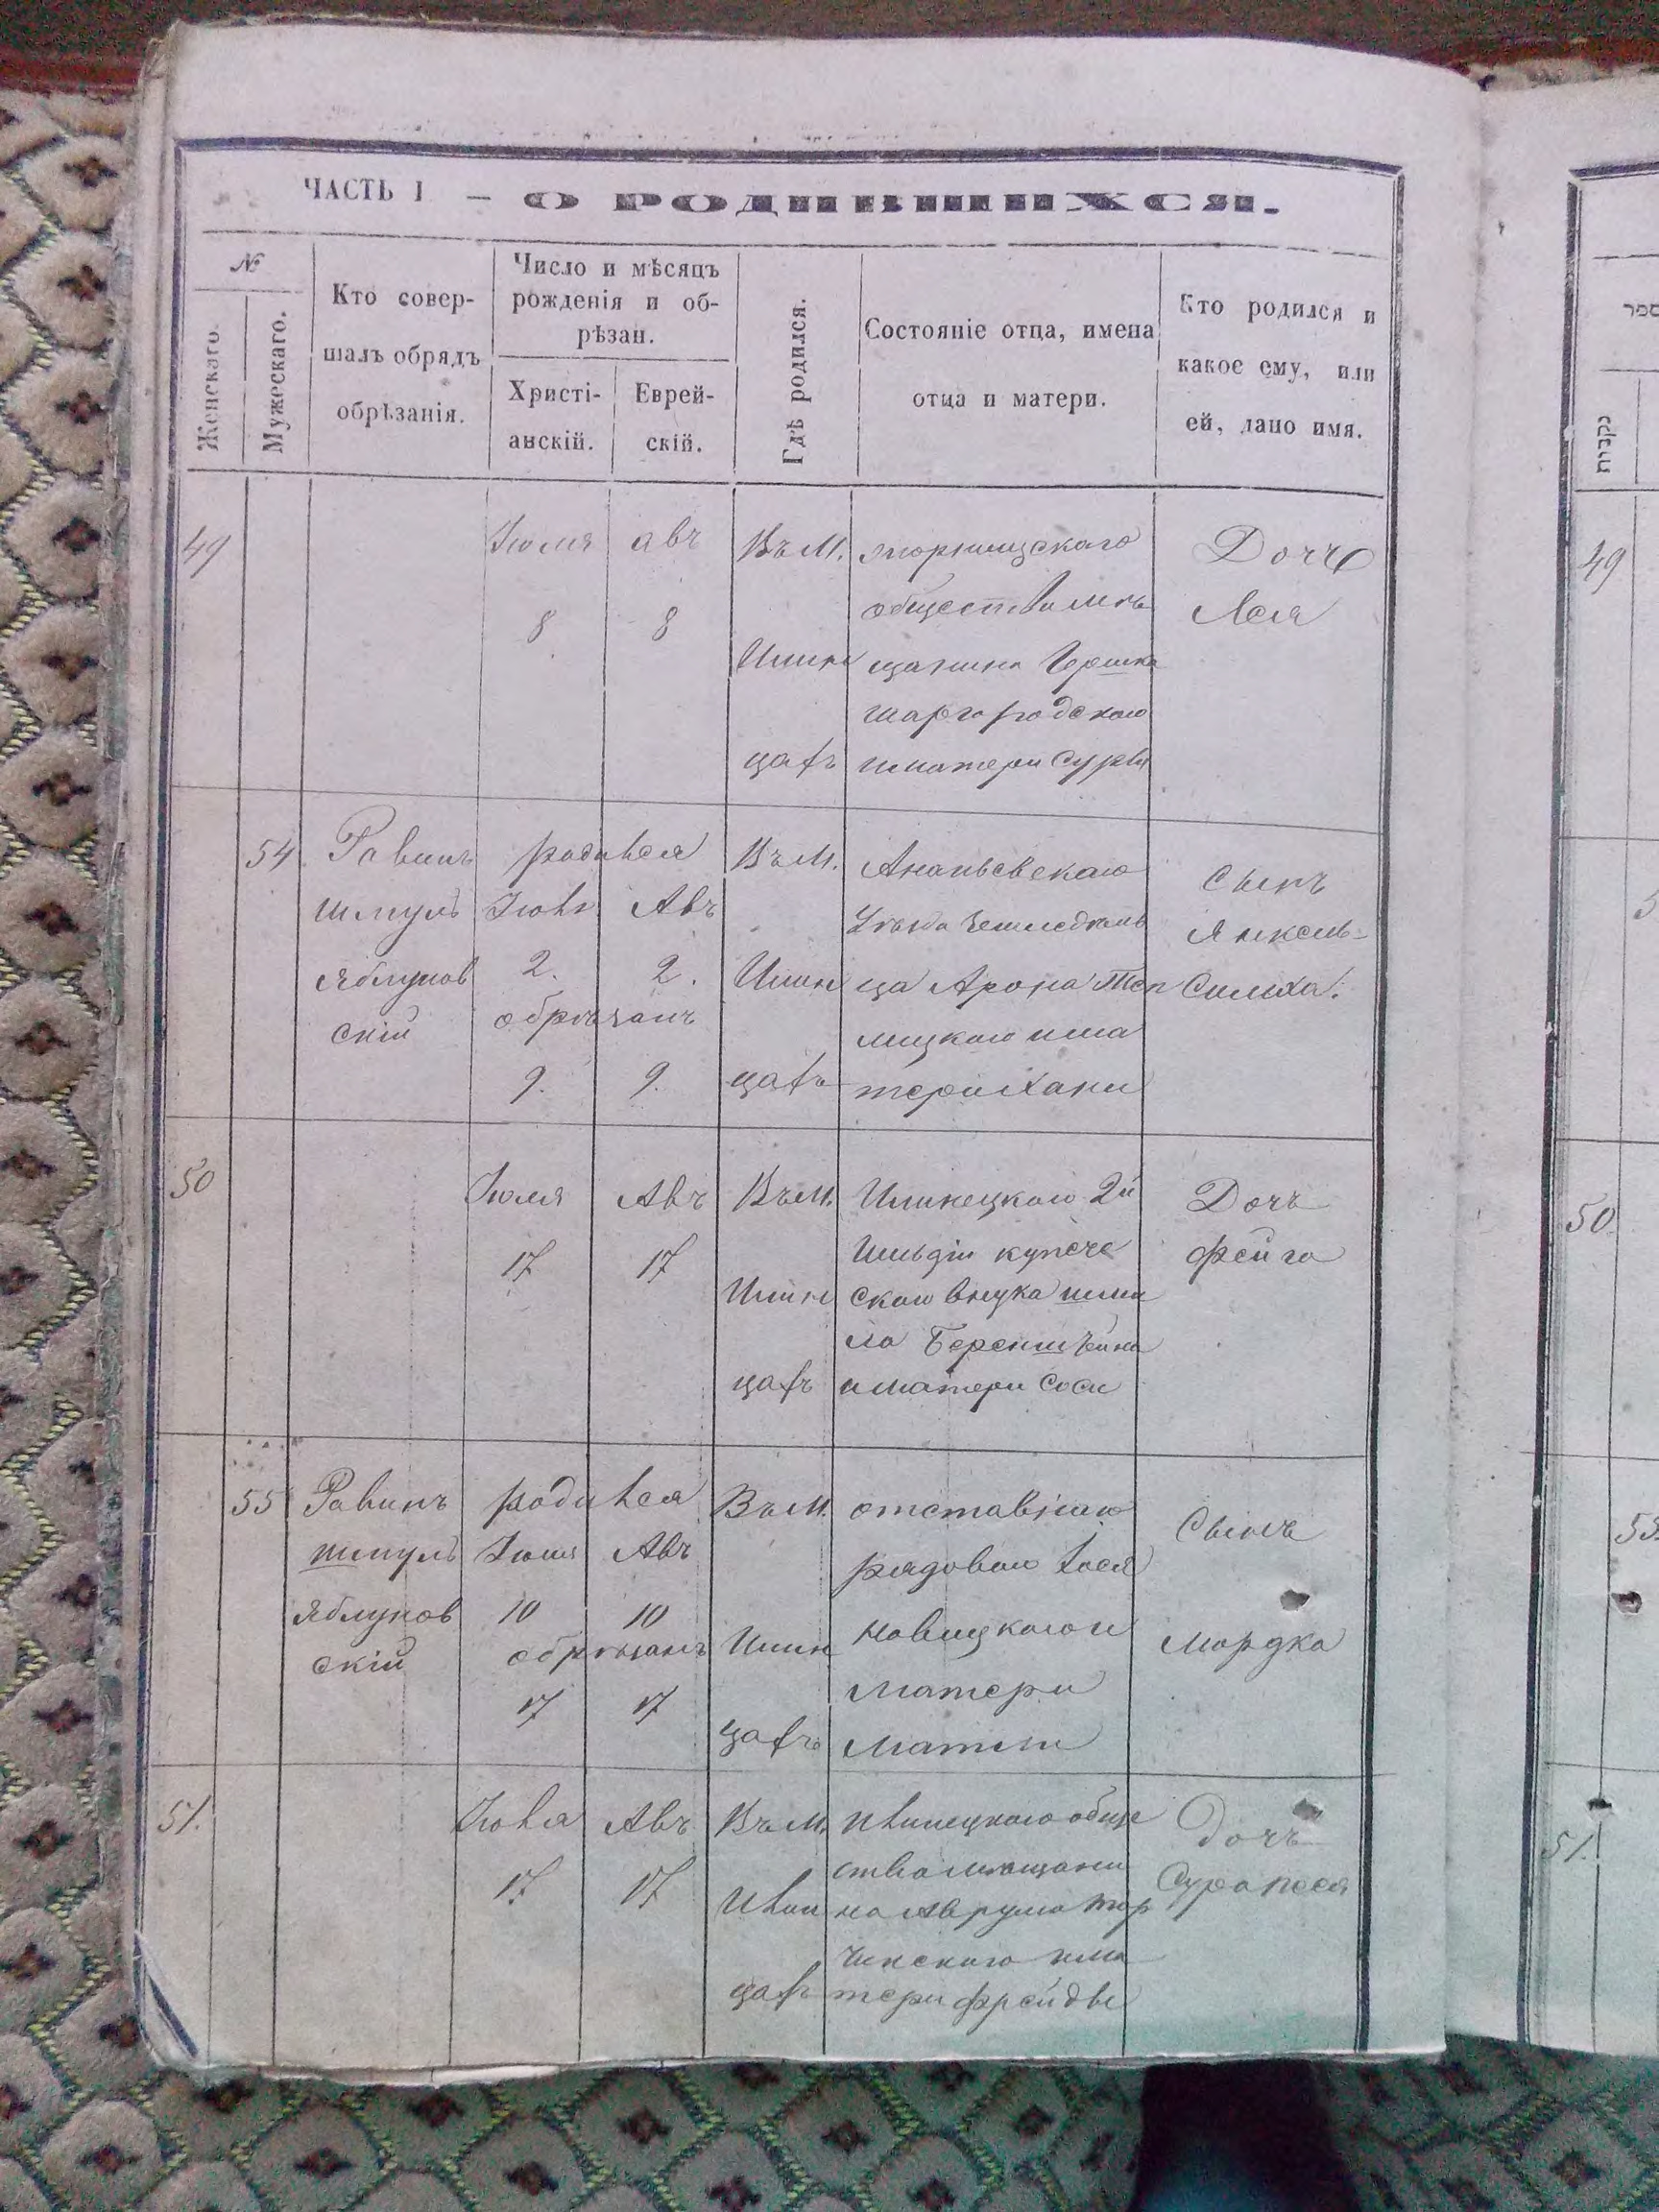 ЧАСТЬ I — О РОДИВШИХСЯ.
№
Женскаго.
Мужескаго.
Кто совер-
шалъ обрядъ
обрѣзанія.
Число и мѣсяцъ
рожденія и об-
рѣзан.
Христі-
анскій.
Еврей-
скій.
Гдѣ родился.
Состояніе отца, имена
отца и матери.
Кто родился и
какое ему, или
ей, дано имя.
49
Іюля
8
авъ
8
Въ М.
Илин
цахъ
общества мѣ
щанина Гершка
шаргородскаго
и матери Суры
Дочь
Лея
54
Равинъ
Шмуль
Яблунов
скій
родился
Іюля Авъ
2. 2.
обрѣзанъ
9. 9.
Въ М.
Илин
цахъ
Ананьевскаго
Уѣзда земледѣль
ца Арона Теп
лицкаго и ма
тери Хани
Сынъ
Янкель-
Симха.
50
Іюля
17
Авъ
17
Въ М.
Илин
цахъ
Илинецкаго 2й
гильдіи купече
скаго внука
ла Беренштейна
и матери Соси
Дочь
Фейга
55
Равинъ
Шмуль
Яблунов
скій
родился
Іюля Авъ
10 10
обрѣзанъ
17 17
Въ М.
Илин
цахъ
отставнаго
рядоваго Іося
Новицкаго и
матери
Сынъ
Мордко
51.
Іюля
17
Авъ
17
Въ М.
Илин
цахъ
Илинецкаго обще
ства мѣщани
на Аврума
чинскаго и ма
тери Фрейды
Дочь
Сура Песя
ספר
49
50
51.